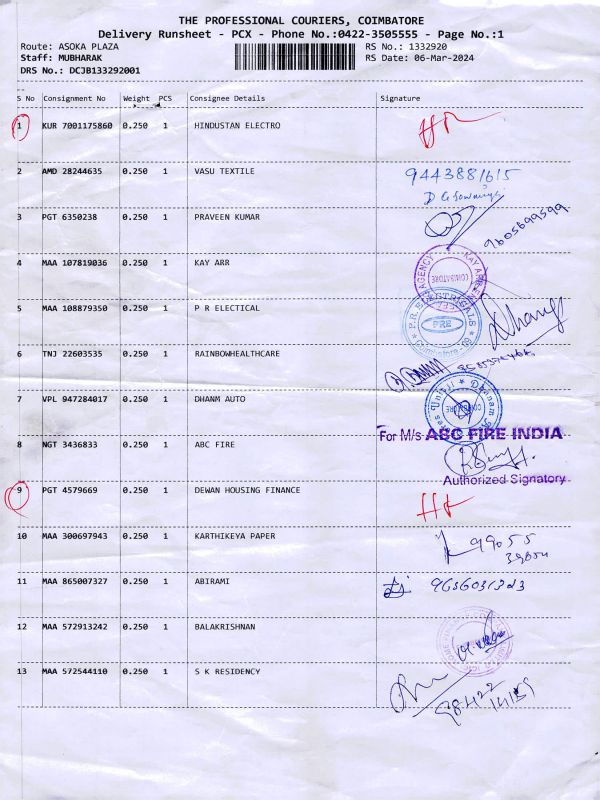 THE PROFESSIONAL COURIERS, COIMBATORE
Delivery Runsheet - PCX - Phone No.:0422-3505555 - Page No.:1
Route: ASOKA PLAZA RS No.: 1332920
Staff: MUBHARAK RS Date: 06-Mar-2024
DRS No.: DCJB133292001
S No Consignment No Weight PCS Consignee Details Signature
1 KUR 7001175860 0.250 1 HINDUSTAN ELECTRO
2 AMD 28244635 0.250 1 VASU TEXTILE 9443881615
3 PGT 6350238 0.250 1 PRAVEEN KUMAR 9605699599
4 MAA 107819036 0.250 1 KAY ARR
AGENCY KAY ARR COIMBATORE
5 MAA 108879350 0.250 1 P R ELECTICAL
P.R. ELECTRICALS PRE Coimbatore
6 TNJ 22603535 0.250 1 RAINBOWHEALTHCARE
7 VPL 947284017 0.250 1 DHANM AUTO
Dhanam
For M/s ABC FIRE INDIA
8 NGT 3436833 0.250 1 ABC FIRE
Authorized Signatory
9 PGT 4579669 0.250 1 DEWAN HOUSING FINANCE
10 MAA 300697943 0.250 1 KARTHIKEYA PAPER 99055
11 MAA 865007327 0.250 1 ABIRAMI
12 MAA 572913242 0.250 1 BALAKRISHNAN
13 MAA 572544110 0.250 1 S K RESIDENCY
98422
14159